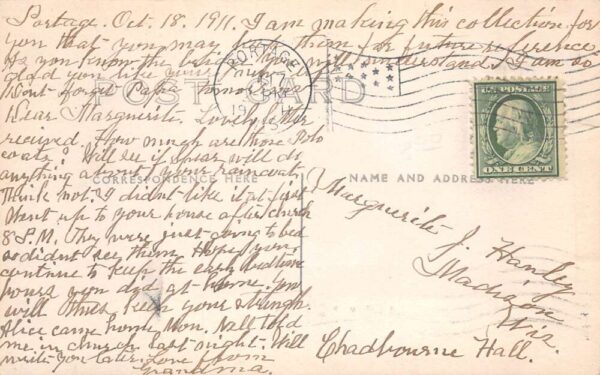 Portage. Oct. 18. 1911. I am making this collection for
you that you may have them for future reference.
As you know the back you will understand. I am so
glad you like your
Don't forget Papa
PORTAGE
POST CARD
U.S. POSTAGE
ONE CENT
Dear Marguerite. Lovely letter
received. How much are those Polo
coats? Will see if Spear will do
anything about your raincoat.
Think not. I didnt like it at first
Went up to your house after church
8 P.M. They were just going to bed
so didn't see them. Hope you
continue to keep the early bedtime
hours you did at home. You
will thus keep your strength.
Alice came home, Mon. Nell told
me in church last night. Will
write you later. Love from
Grandma.
CORRESPONDENCE HERE
NAME AND ADDRESS HERE
Marguerite J. Hanley
Madison
Wis.
Chadbourne Hall.